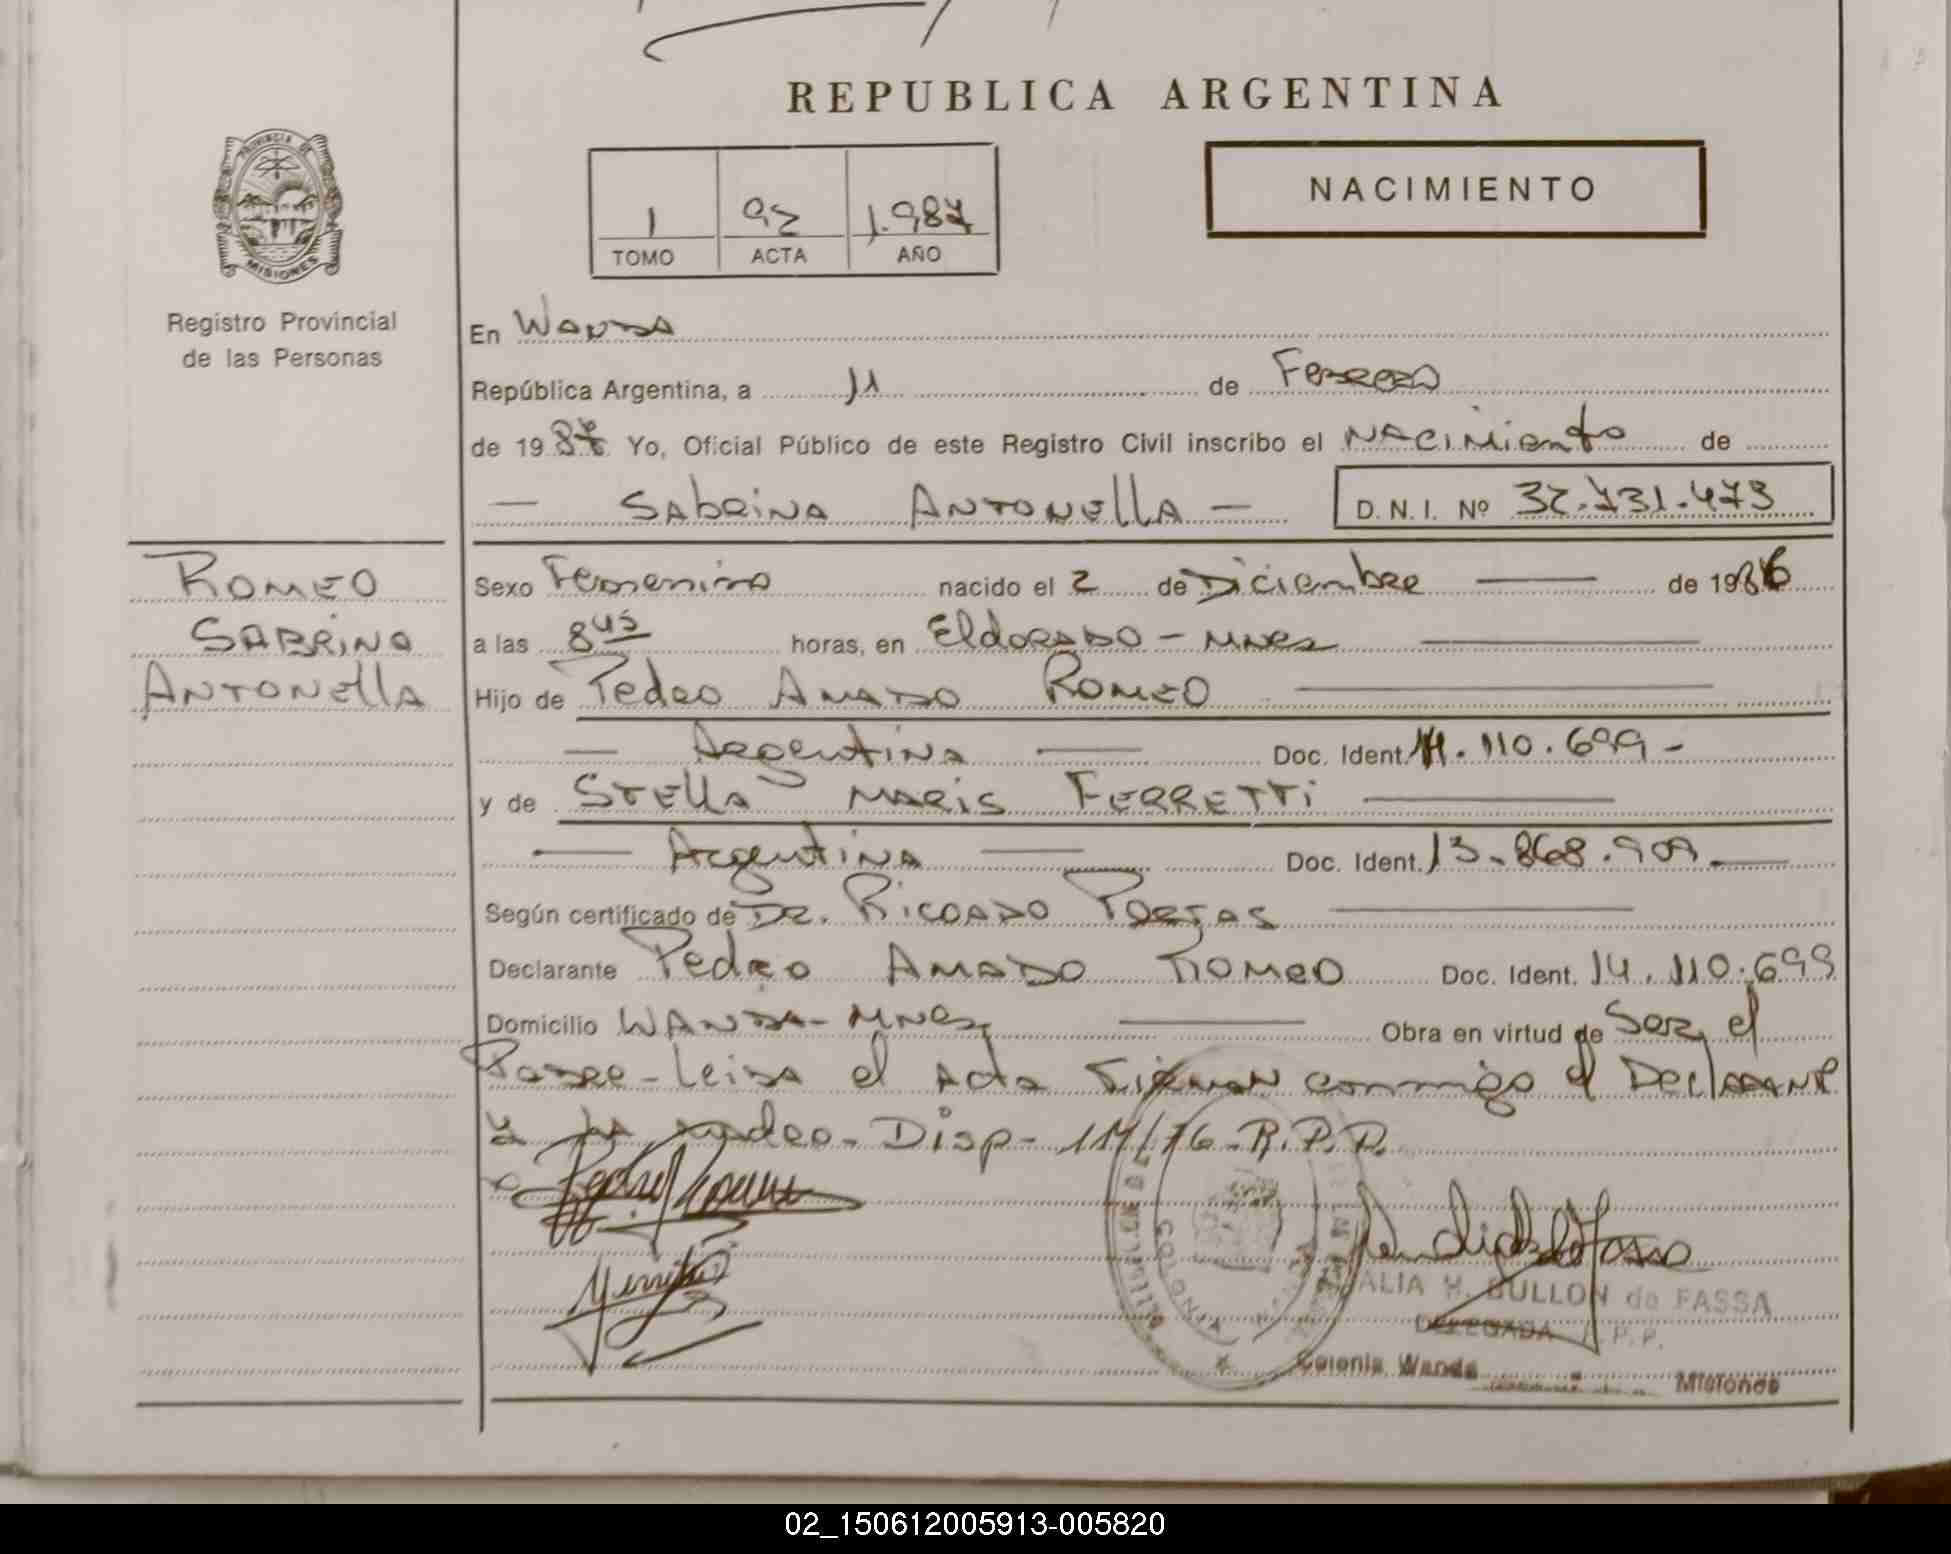 REPUBLICA ARGENTINA
PROVINCIA DE MISIONES
Registro Provincial
de las Personas
1 92 1.987
TOMO ACTA AÑO
NACIMIENTO
En Wanda
República Argentina, a 11 de Febrero
de 1987 Yo, Oficial Público de este Registro Civil inscribo el Nacimiento de
— Sabrina Antonella — D.N.I. Nº 32.731.473
ROMEO
SABRINA
ANTONELLA
Sexo Femenino nacido el 2 de Diciembre — de 1986
a las 8 45 horas, en Eldorado - Mnes —
Hijo de Pedro Amado Romeo —
— Argentina — Doc. Ident. 14.110.699 -
y de Stella Maris Ferretti —
— Argentina — Doc. Ident. 13.868.909. —
Según certificado de Dr. Ricardo —
Declarante Pedro Amado Romeo Doc. Ident. 14.110.699
Domicilio Wanda - Mnes — Obra en virtud de Ser el
Padre - Leida el Acta Firman conmigo el Declarante
y la madre - Disp - 114/76 - R.P.P.
COLONIA WANDA
ALIA H. BULLON de FASSA
DELEGADA R.P.P.
Colonia Wanda Misiones
02_150612005913-005820